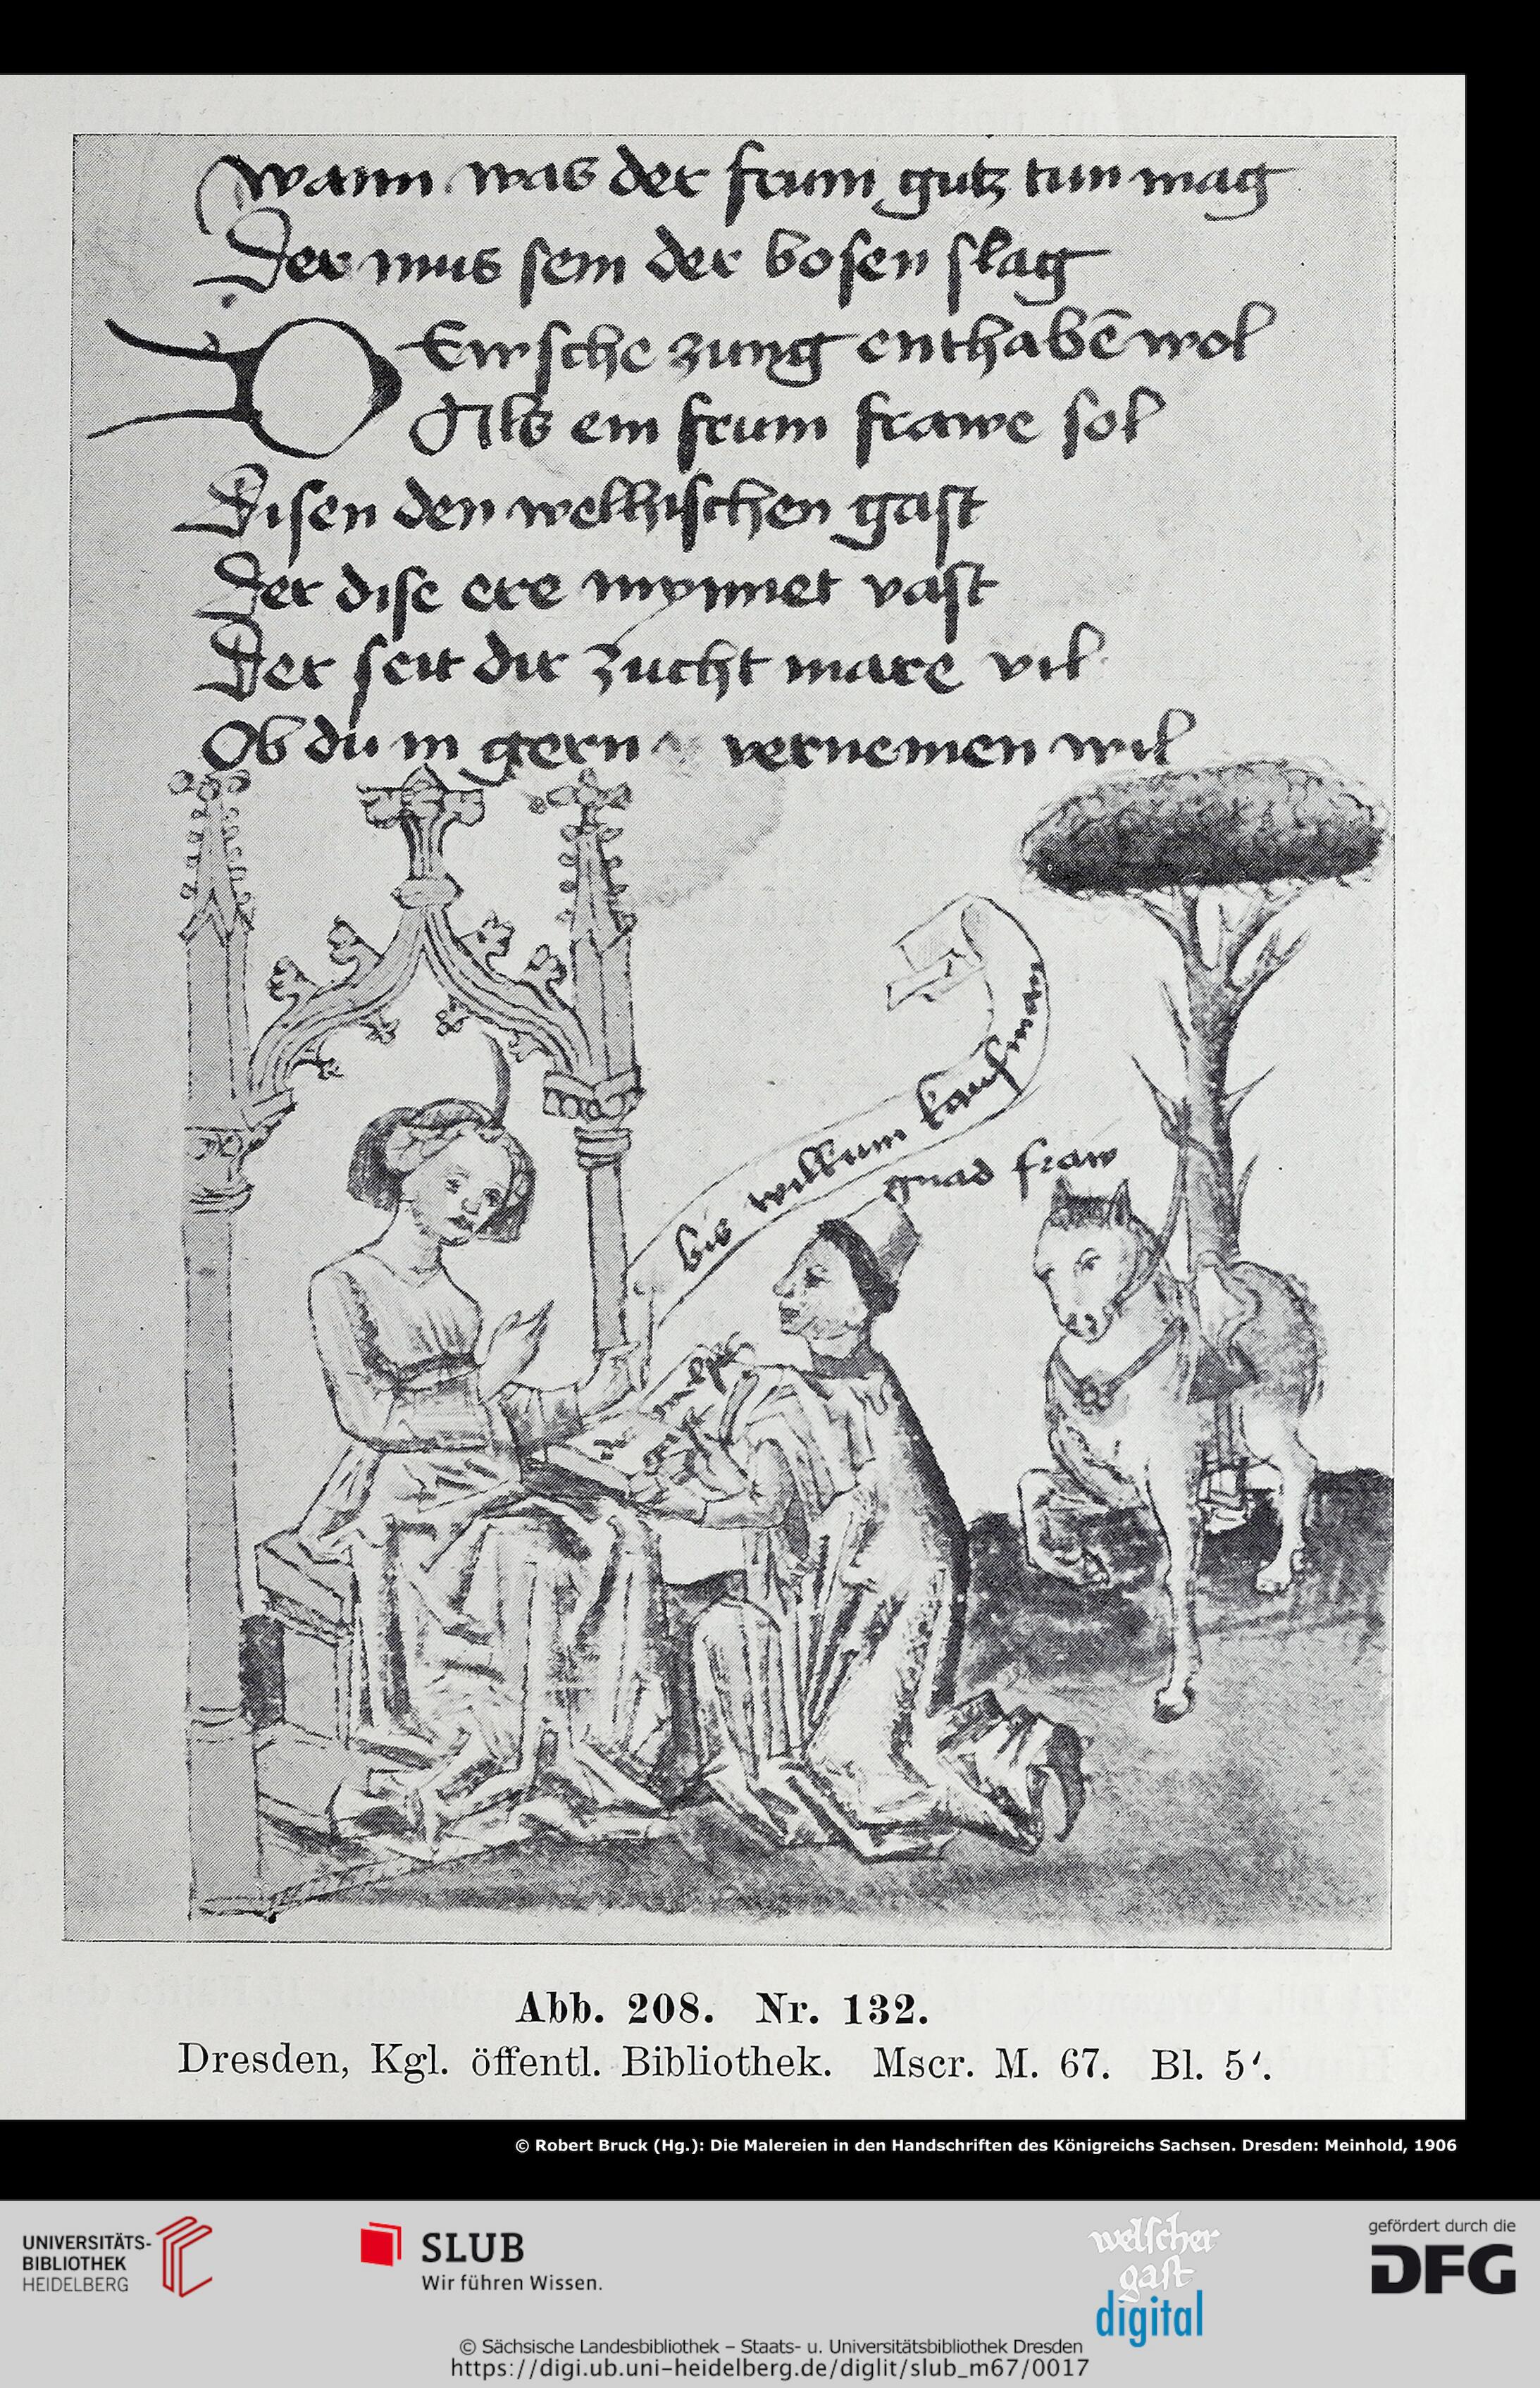 wann was der frum gutz tun mag
Der mus sein der bosen slag
DEwsche zung enthabē wol
Als ein frum frawe sol
Disen den welhischen gast
Der dise ere mynnet vast
Der seit dir zucht mare vil
Ob du in gern vernemen wil
bis willkum kaufman
gnad fraw
Abb. 208. Nr. 132.
Dresden, Kgl. öffentl. Bibliothek. Mscr. M. 67. Bl. 5′.
© Robert Bruck (Hg.): Die Malereien in den Handschriften des Königreichs Sachsen. Dresden: Meinhold, 1906
UNIVERSITÄTS-
BIBLIOTHEK
HEIDELBERG
SLUB
Wir führen Wissen.
welscher
gast
digital
gefördert durch die
DFG
© Sächsische Landesbibliothek – Staats- u. Universitätsbibliothek Dresden
https://digi.ub.uni-heidelberg.de/diglit/slub_m67/0017